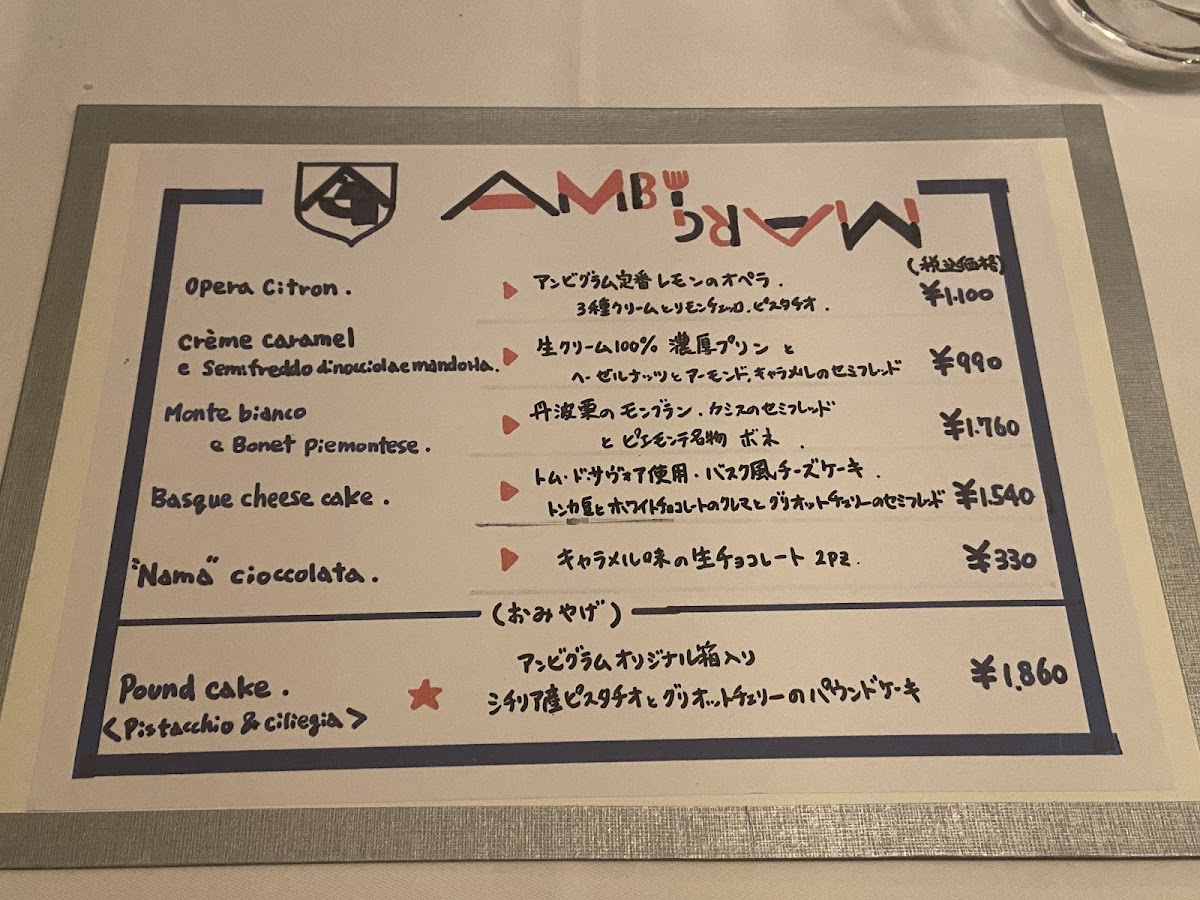 AMBIGRAM
(税込価格)
Opera Citron. アンビグラム定番レモンのオペラ. ¥1.100
3種クリームとリモンチェッロ.ピスタチオ.
crème caramel 生クリーム100% 濃厚プリンと ¥990
e Semifreddo di nocciola e mandorla. ヘーゼルナッツとアーモンド,キャラメルのセミフレッド
Monte bianco 丹波栗のモンブラン.カシスのセミフレッド ¥1.760
e Bonet piemontese. とピエモンテ名物 ボネ.
Basque cheese cake. トム・ド・サヴォア使用・バスク風チーズケーキ. ¥1.540
トンカ豆とホワイトチョコレートのクレマとグリオットチェリーのセミフレッド
"Nama" cioccolata. キャラメル味の生チョコレート 2pz. ¥330
(おみやげ)
Pound cake. アンビグラムオリジナル箱入り ¥1.860
<Pistacchio & ciliegia> シチリア産ピスタチオとグリオットチェリーのパウンドケーキ